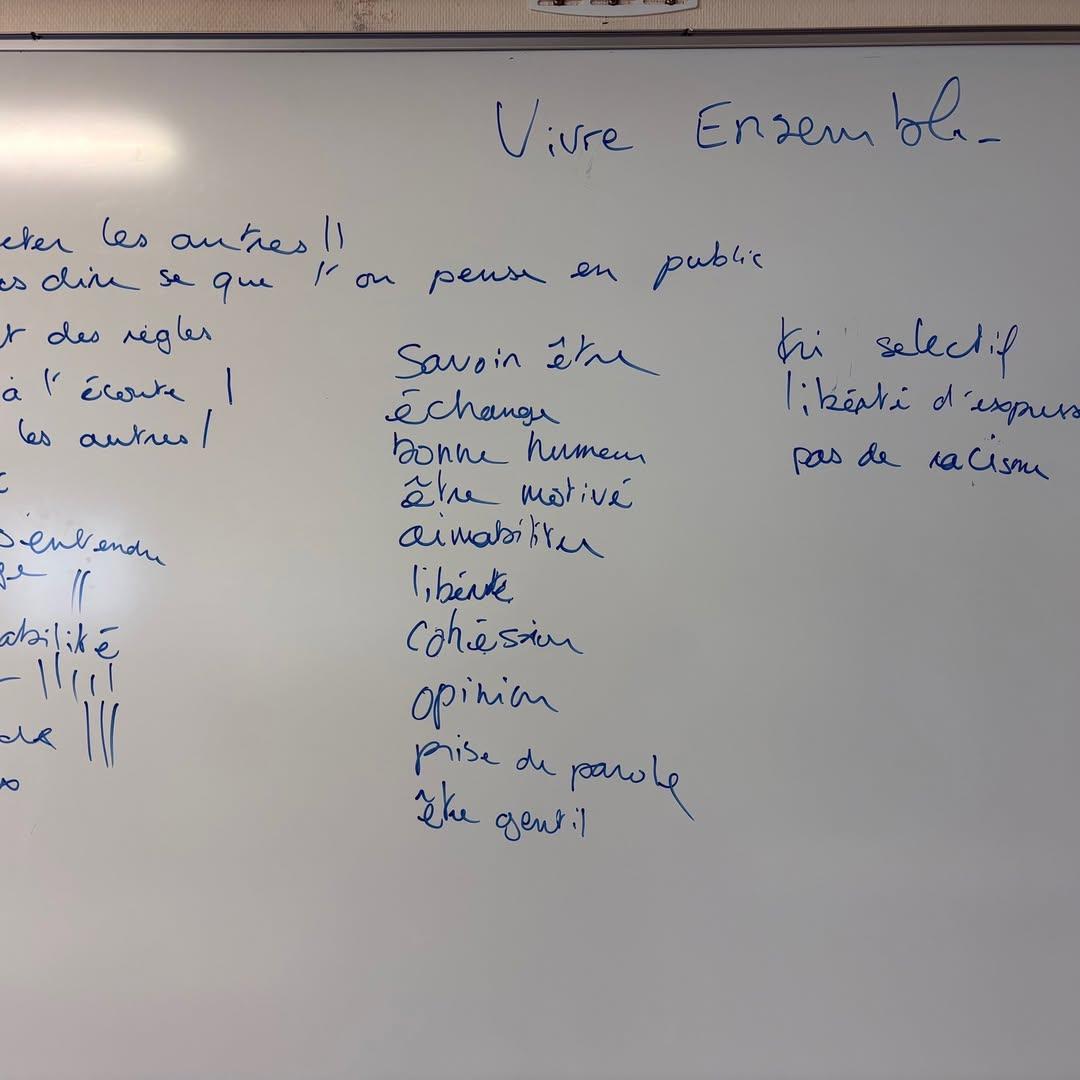 Vivre Ensemble
les autres !!
dire se que l'on pense en public
des règles
à l'écoute |
les autres |
s'entendre
||
abilité
||||||
|||
Savoir être
échange
bonne humeur
être motivé
aimabiliter
libérté
cohésion
opinion
prise de parole
être gentil
tri selectif
libérté d'express
pas de racisme